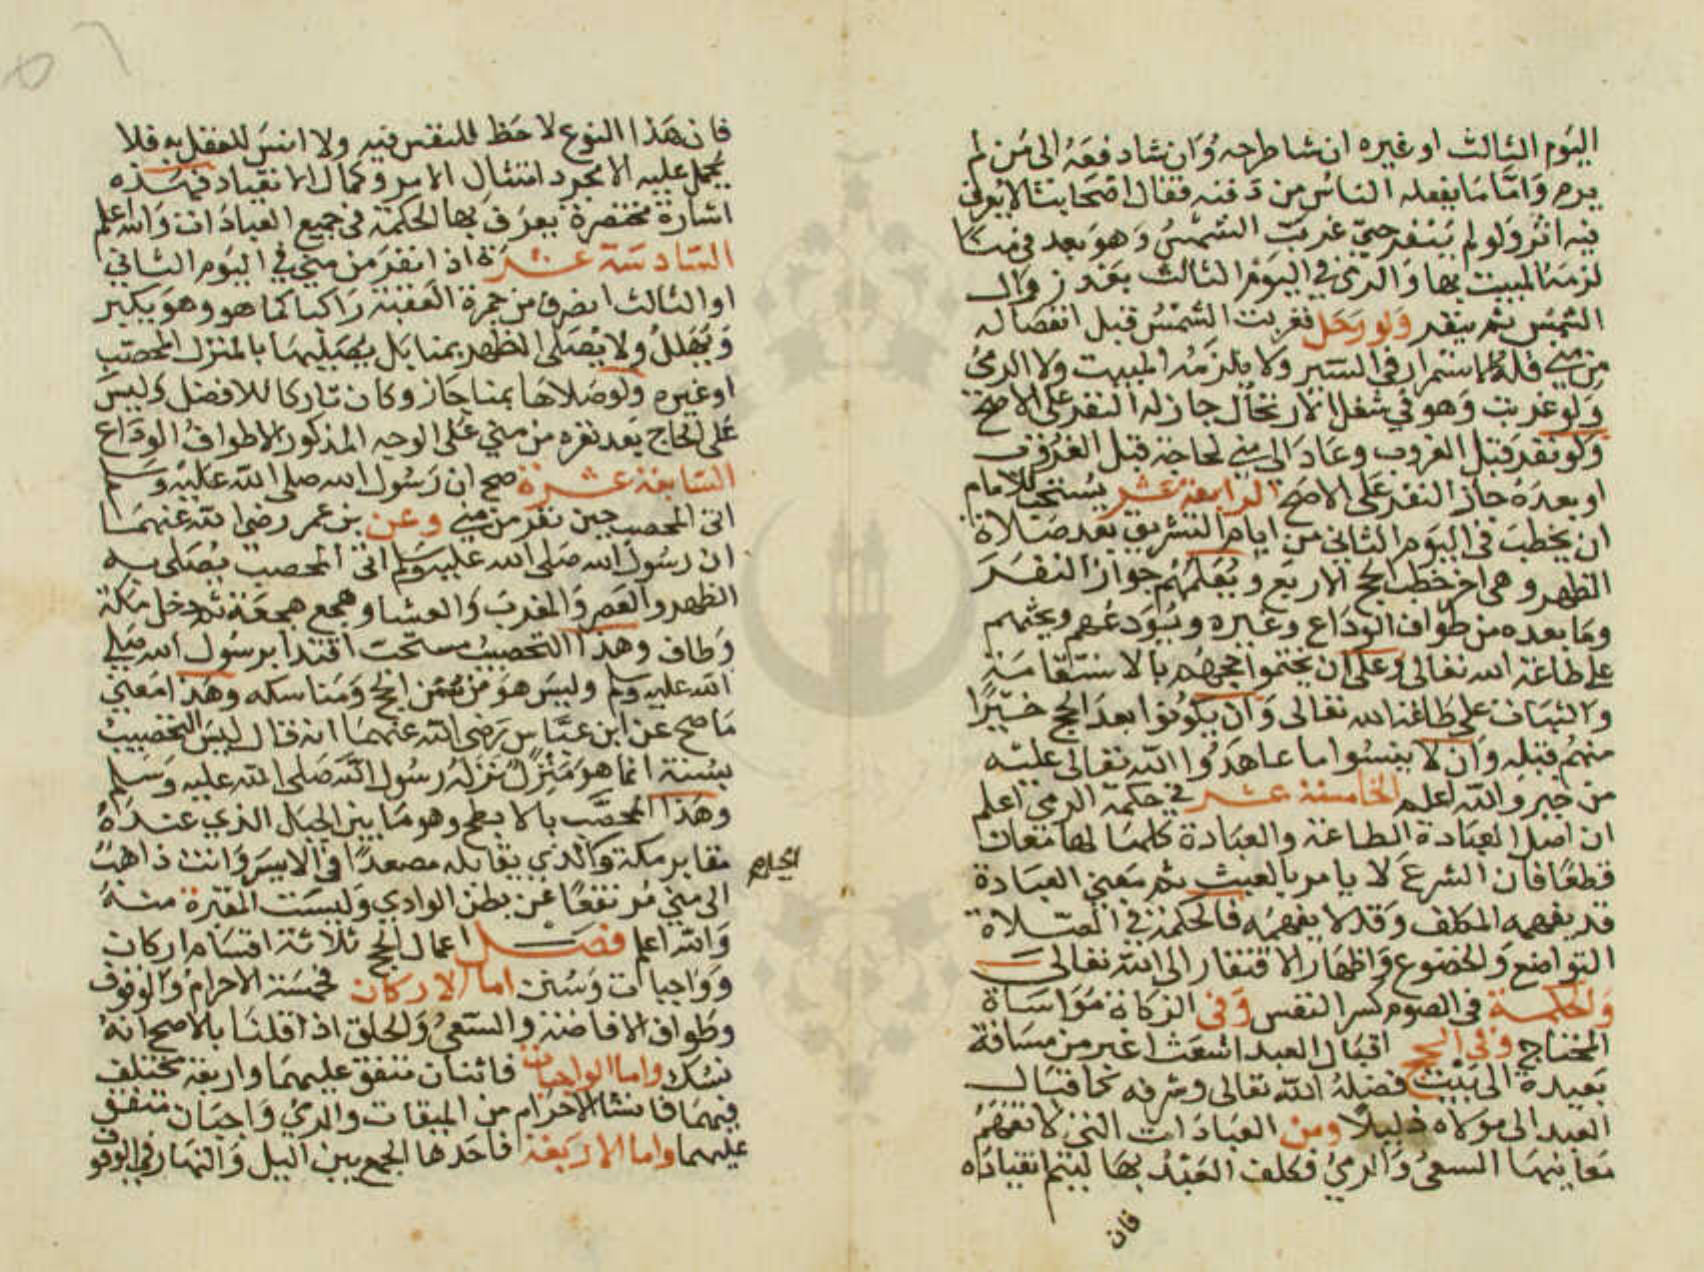 اليوم الثالث او غيره ان شا طرحه وان شا دفعه الى من لم
يرم واما ما يفعله الناس من دفنه فقال اصحابنا لا يعرف
فيه اثر ولو لم ينفر حتى غربت الشمس وهو بعد في منا
لزمه المبيت بها والرمي في اليوم الثالث بعد زوال
الشمس ثم ينفر ولو رحل فغربت الشمس قبل انفصاله
من منى فله الاستمرار في السير ولا يلزمه المبيت ولا الرمي
ولو غربت وهو في شغل الارتحال جاز له النفر على الاصح
ولو نفر قبل الغروب وعاد الى منى لحاجة قبل الغروب
او بعده جاز النفر على الاصح الرابعة عشر يستحب للامام
ان يخطب في اليوم الثاني من ايام التشريق بعد صلاة
الظهر وهي اخر خطب الحج الاربع ويعلمهم جواز النفر
وما بعده من طواف الوداع وغيره ويودعهم ويحثهم
على طاعة الله تعالى وعلى ان يختموا حجهم بالاستقامة
والثبات على طاعة الله تعالى وان يكونوا بعد الحج خيرا
منهم قبله وان لا ينسوا ما عاهدوا الله تعالى عليه
من خير والله اعلم الخامسة عشر في حكمة الرمي اعلم
ان اصل العبادة الطاعة والعبادة كلها لها معان
قطعا فان الشرع لا يامر بالعبث ثم معنى العبادة
قد يفهمه المكلف وقد لا يفهمه فالحكمة في الصلاة
التواضع والخضوع واظهار الافتقار الى الله تعالى
والحكمة في الصوم كسر النفس وفي الزكاة مواساة
المحتاج وفي الحج اقبال العبد اشعث اغبر من مسافة
بعيدة الى بيت فضله الله تعالى وشرفه كاقبال
العبد الى مولاه ذليلا ومن العبادات التي لا تفهم
معانيها السعي والرمي فكلف العبد بها ليتم انقياده
فان
فان هذا النوع لا حظ للنفس فيه ولا انس للعقل به فلا
يحمل عليه الا مجرد امتثال الامر وكمال الانقياد فهذه
اشارة مختصرة يعرف بها الحكمة في جميع العبادات والله اعلم
السادسة عشرة اذا نفر من منى في اليوم الثاني
او الثالث انصرف من جمرة العقبة راكبا كما هو وهو يكبر
ويهلل ولا يصلى الظهر بمنا بل يصليها بالمنزل المحصب
او غيره ولو صلاها بمنا جاز وكان تاركا للافضل وليس
على الحاج بعد نفره من منى على الوجه المذكور الا طواف الوداع
السابعة عشرة صح ان رسول الله صلى الله عليه وسلم
اتى المحصب حين نفر من منى وعن بن عمر رضي الله عنهما
ان رسول الله صلى الله عليه وسلم اتى المحصب فصلى به
الظهر والعصر والمغرب والعشا وهجع هجعة ثم دخل مكة
وطاف وهذا التحصيب مستحب اقتدا برسول الله صلى
الله عليه وسلم وليس هو من سنن الحج ومناسكه وهذا معنى
ما صح عن ابن عباس رضي الله عنهما انه قال ليس التحصيب
بسنة انما هو منزل نزله رسول الله صلى الله عليه وسلم
وهذا المحصب بالابطح وهو ما بين الجبل الذي عنده
مقابر مكة والذي يقابله مصعدا في الايسر وانت ذاهب
الى منى مرتفعا عن بطن الوادي وليست المقبرة منه
والله اعلم فصل اعمال الحج ثلاثة اقسام اركان
وواجبات وسنن اما الاركان فخمسة الاحرام والوقوف
وطواف الافاضة والسعي والحلق اذا قلنا بالاصح انه
نسك واما الواجبات فاثنان متفق عليهما واربعة مختلف
فيهما فانشا الاحرام من الميقات والرمي واجبان متفق
عليهما واما الاربعة فاحدها الجمع بين اليل والنهار في الوقو